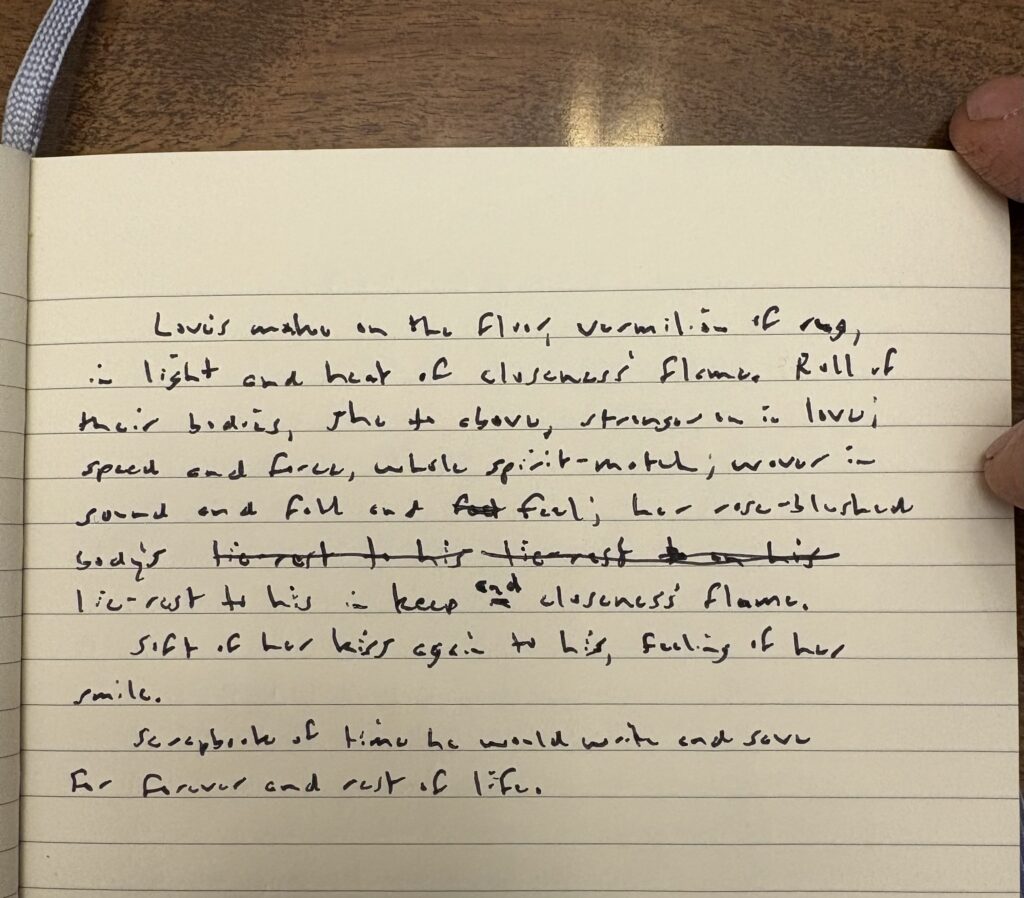 Love's make on the floor, vermilion of rug,
in light and heat of closeness' flame. Roll of
their bodies, she to above, stronger on in love;
speed and force, whole spirit-match; waver in
sound and fall and feel; her rose-blushed
body's lie-rest to his lie-rest to on his
lie-rest to his in keep and closeness' flame.
Soft of her kiss again to his, feeling of her
smile.
Scrapbook of time he would write and save
for forever and rest of life.